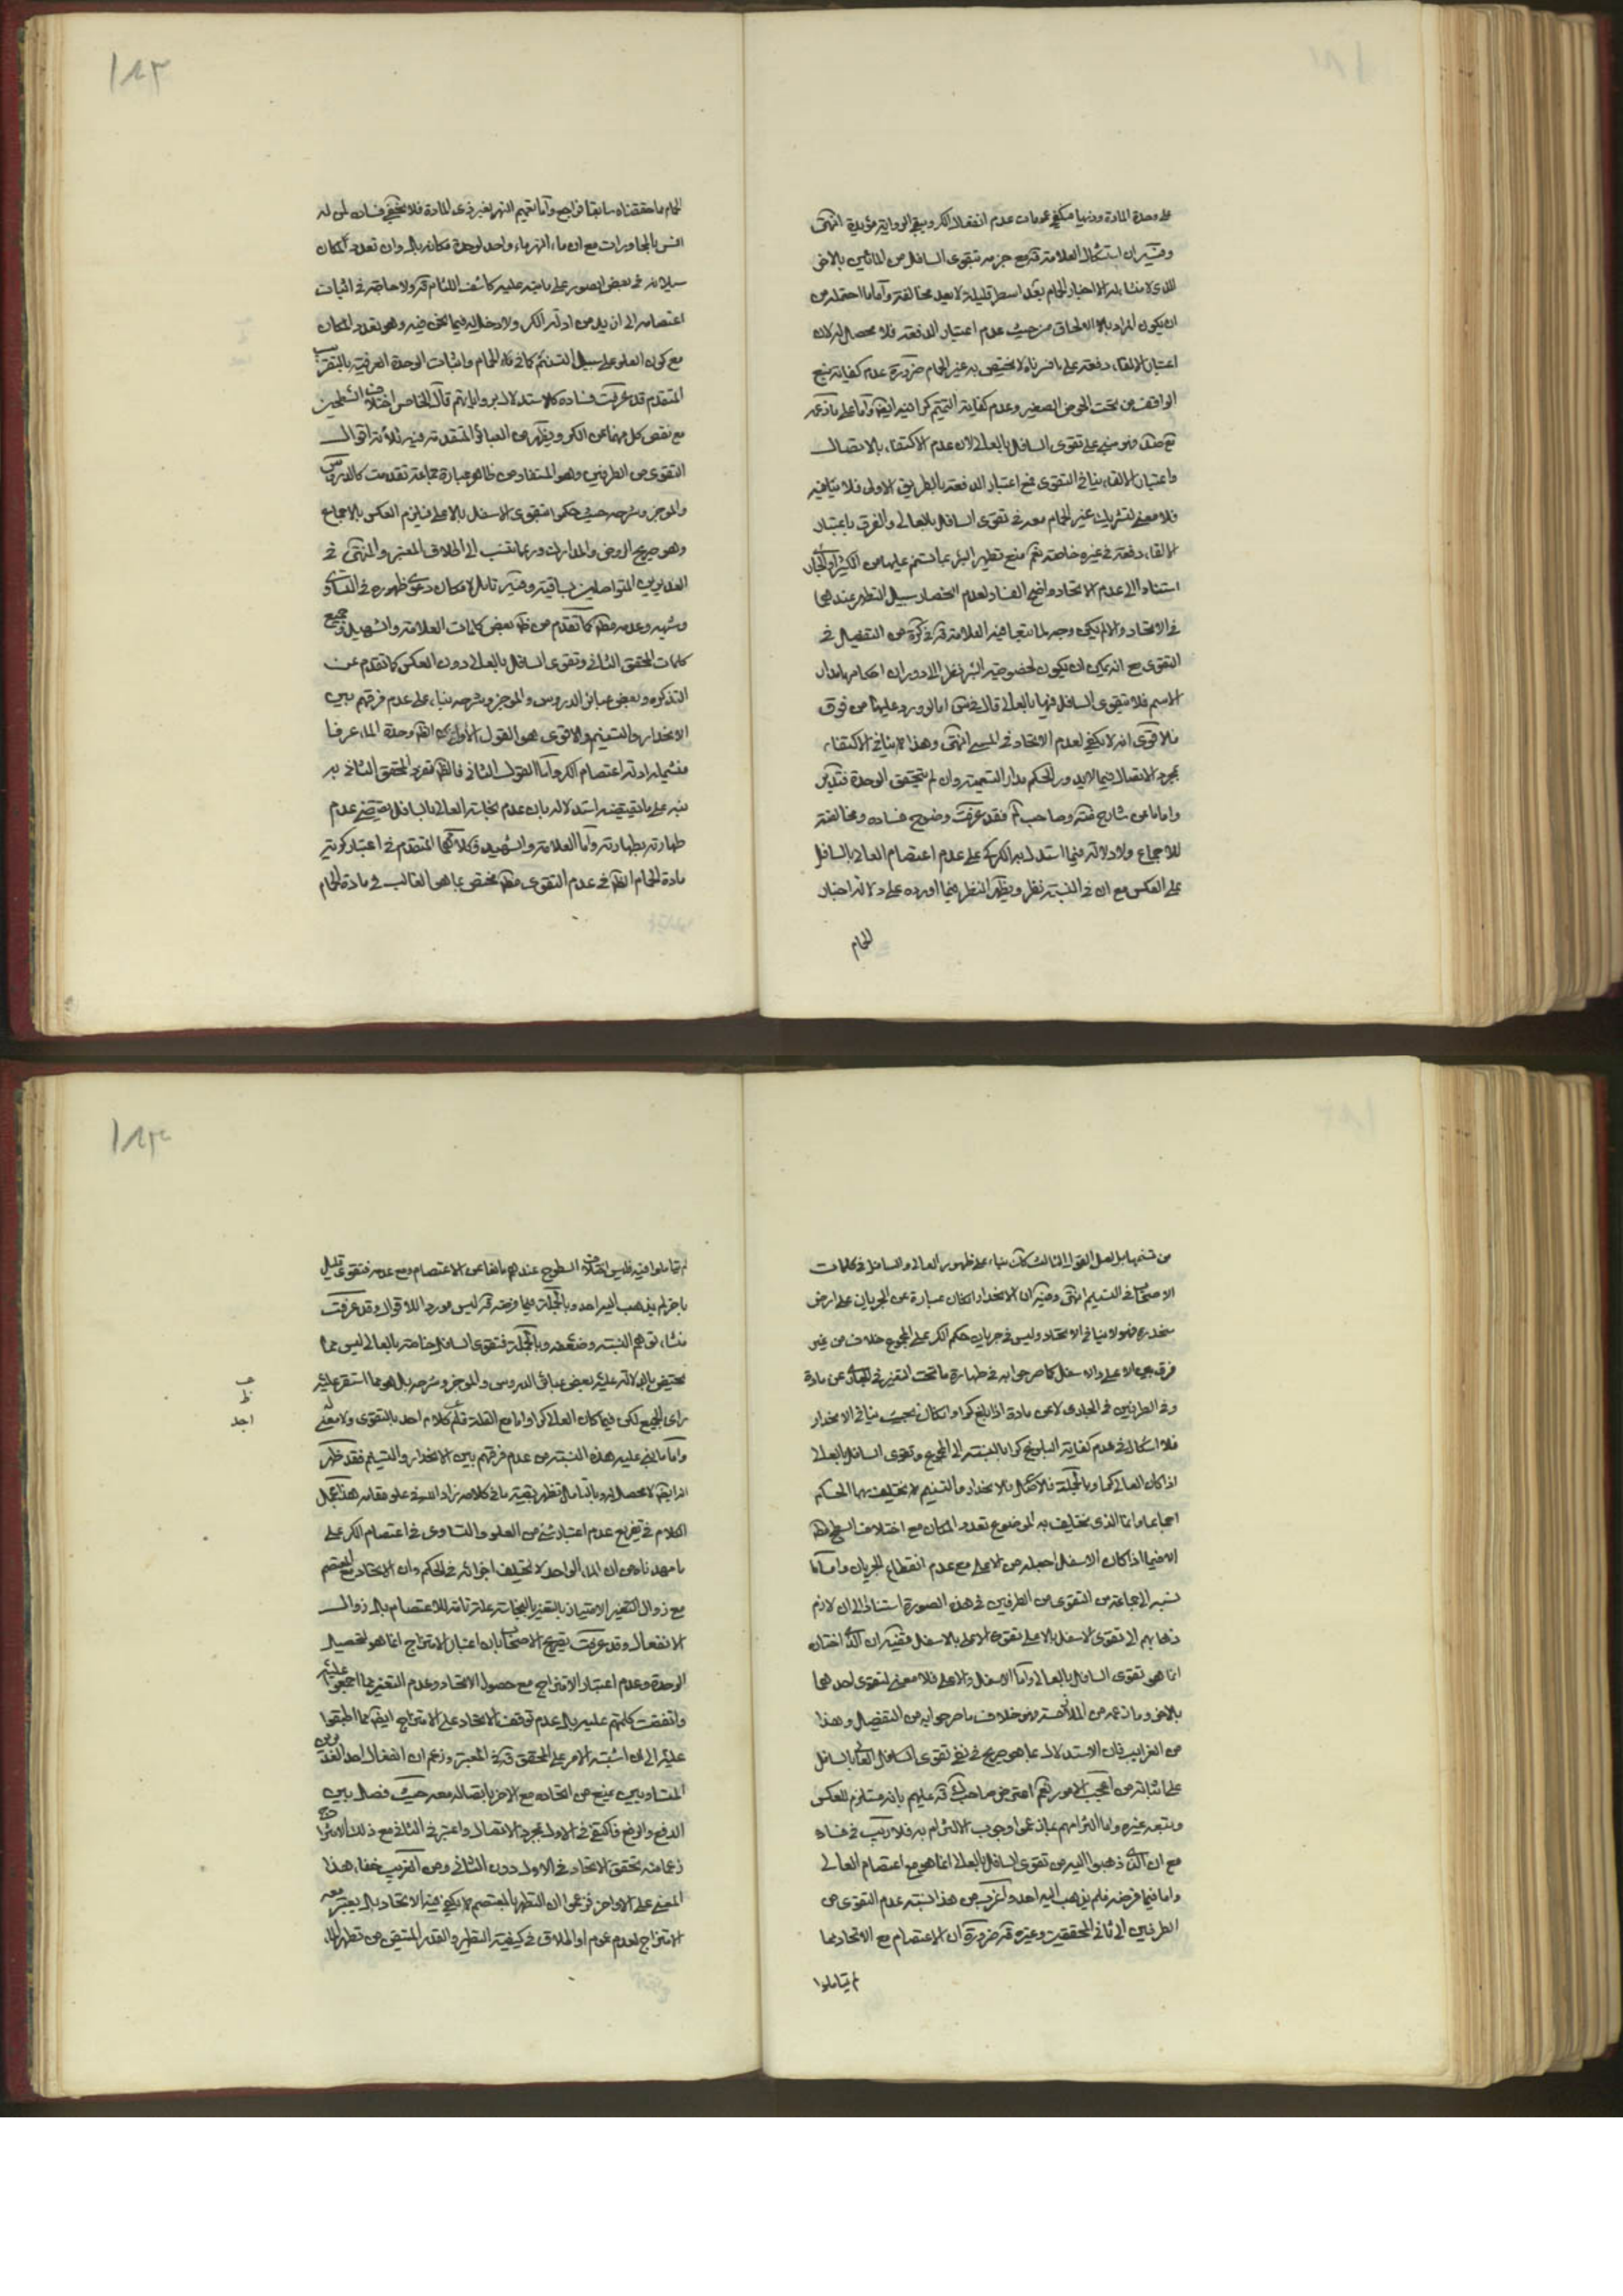 على وحدة المادة ودنها مبكفى عمومات عدم انفعال الكر ويبقى الرواية مؤيدة انتهى
وفيه ان استشكال العلامة قده مع جزمه بتقوى السافل من المائين بالاخر
الذى لا منشا له الا اخبار الحمام بعد اسطر قليلة لا بعيد مخالفته واما ما احتمله من
ان يكون المراد بالالحاق من حيث عدم اعتبار الدفعة فلا محصل له لان
اعتبار الالقاء دفعة على لا يختص به غير الحمام ضرورة عدم كفاية نبع
الواقف من تحت الحوض الصغير وعدم كفاية التتميم كرا فيه ايضا واما على ما ذكره
مبنى على تقوى السافل بالعالى لان عدم الاكتفاء بالاتصال
واعتبار الالقاء ينافى التقوى فمع اعتبار الدفعة بالطريق الاولى فلا ينافيه
فلا معنى لتشريك غير الحمام معه فى تقوى السافل بالعالى والفرق باعتبار
الالقاء دفعة فى غيره خاصة نعم منع تطهير البئر بما تسنم عليها من الكثير او الجارى
استنادا الى عدم الاتحاد واضح الفساد لعدم انحصار سبيل التطهر عندهما
فى الاتحاد والا لم يكن وجه لما تبعا فيه العلامة قده فى كره من التفصيل فى
التقوى مع انه يمكن ان يكون لخصوصية البئر نظر الى دوران احكامها مدار
الاسم فلا يتقوى السافل فيها بالعالى قال فى س اما لو ورد عليها من فوق
فالاقوى انه لا يكفى لعدم الاتحاد فى المسمى انتهى وهذا لا ينافى الاكتفاء
بمجرد الاتصال فيما لا يدور الحكم مدار التسمية وان لم يتحقق الوحدة فتدبر
واما ما عن شارح وصاحب لم فقد عرفت وضوح فساده ومخالفته
للاجماع ولا دلالة فيما استدل به الكركى على عدم اعتصام العالى بالسافل
على العكس مع ان فى النسبة نظر ويظهر النظر فيما اورده على دلالة اخبار
الحمام
الحمام ما حققناه سابقا فراجع واما تعميم النهر لغير ذى المادة فلا يخفى فساده لمن له
انس بالمحاورات مع ان ماء النهر ماء واحد لوحدة مكانه بل وان تعدد المكان
سيلانه فى بعض الصور على ما نبه عليه كاشف اللثام قده ولا حاجة فى اثبات
اعتصامه الى ازيد من ادلة الكر ولا دخل له فيما نحن فيه وهو تعدد المكان
مع كون العلو على سبيل التسنم كما فى ماء الحمام واثبات الوحدة العرفية بالتقريب
المتقدم قد عرفت فساده كالاستدلال بروايات ثم قال الخامس اختلاف السطحين
مع نقص كل منهما عن الكر ويظهر من العبائر المتقدمة فيه ثلاثة اقوال
التقوى من الطرفين وهو المستفاد من ظاهر عبارة جماعة تقدمت كالدروس
والموجز وشرحه حيث حكموا بتقوى الاسفل بالاعلى فيلزم العكس بالاجماع
وهو صريح الروض والمدارك وربما ينسب الى اطلاق المعتبر والمنتهى فى
الغديرين المتواصلين بساقية وفيه تامل لامكان دعوى ظهوره فى التساوى
وشبهه وعدمه مطلقا كما تقدم من ظاهر بعض كلمات العلامة والشهيد وجميع
كلمات المحقق الثانى وتقوى السافل بالعالى دون العكس كما تقدم عن
التذكرة وبعض عبائر الدروس والموجز وشرحه بناء على عدم فرقهم بين
الانحدار والتسنيم والاقوى هو القول الاول لان الظاهر وحدة الماء عرفا
فيشمله ادلة اعتصام الكر واما القول الثانى فالظاهر تفرد المحقق الثانى به
بنى على ما يقتضيه استدلاله بان عدم نجاسة العالى بالسافل يقتضى عدم
طهارته بطهارته واما العلامة والشهيد فكلامهما المتقدم فى اعتبار كرية
مادة الحمام الظاهر فى عدم التقوى مطلقا مختص بما هو الغالب فى مادة الحمام
من تسنمها بل لعل القول الثالث كك بناء على ظهور العالى والسافل فى كلمات
الاصحاب فى التسنيم انتهى وفيه ان الانحدار ان كان عبارة عن الجريان على ارض
منحدرة فهو لا ينافى الاتحاد وليس فى جريان حكم الكر على المجموع خلاف من غير
فرق بين الاعلى والاسفل كما صرحوا به فى طهارة ما تحت المتغير فى الجارى عن مادة
وفى الطرفين فى الجارى لا عن مادة اذا بلغ كرا وان كان بحيث ينافى الانحدار
فلا اشكال فى عدم كفاية البلوغ كرا بالنسبة الى المجموع وتقوى السافل بالعالى
اذا كان العالى كرا وبالجملة فلا اشكال فالانحدار والتسنيم لا يختلف بهما الحكم
اجماعا وانما الذى يختلف به الموضوع تعدد المكان مع اختلاف السطح
الا فيما اذا كان الاسفل احيله من الاعلى مع عدم انقطاع الجريان واما ما
نسبه الى جماعة من التقوى من الطرفين فى هذه الصورة استنادا الى ان لازم
ذهابهم الى تقوى الاسفل بالاعلى تقوى الاعلى بالاسفل ففيه ان الذى اختاره
انما هو تقوى السافل بالعالى واما الاسفل والاعلى فلا معنى لتقوى احدهما
بالاخر وما زعمه من الملازمة هو خلاف ما صرحوا به من التفصيل وهذا
من الغرايب فان الاستدلال بما هو صريح فى نفى تقوى السافل العالى بالسافل
على اثباته من اعجب الامور نعم اعترض صاحب قده عليهم بانه مستلزم للعكس
وتبعه غيره واما التزامهم بما زعموا وجوب الالتزام به فلا ريب فى فساده
مع ان الذى ذهبوا اليه من تقوى السافل بالعالى انما هو مع اعتصام العالى
واما فيما فرضه فلم يذهب اليه احد واغرب من هذا نسبة عدم التقوى من
الطرفين الى ثانى المحققين وغيره قده ضرورة ان الاعتصام مع الاتحاد مما
لم يتاملوا
لم يتاملوا فيه فليس اختلاف السطوح عندهم مانعا عن الاعتصام ومع عدمه فتقوى قليل
باخر لم يذهب اليه احد وبالجملة فيما فرضه قده ليس موردا للاقوال وقد عرفت
منشا توهم النسبة وضعفه وبالجملة فتقوى السافل خاصة بالعالى ليس مما
يختص بالدلالة عليه بعض عبائر الدروس والموجز وشرحه بل هو مما استقر عليه
راى الجميع لكن فيما كان العالى كرا واما مع القلة فلم كلام احد بالتقوى ولا معنى له
واما ما بنى عليه هذه النسبة من عدم فرقهم بين الانحدار والتسنيم فقد ظهر
انه ايضا لا محصل له وبالتامل تظهر بقية ما فى كلامه زاد الله فى علو مقامه هذا مجمل
الكلام فى تفريع عدم اعتبار شئ من العلو والتساوى فى اعتصام الكر على
ما مهدناه من ان الماء الواحد لا يختلف اجزائه فى الحكم وان الاتحاد مع المعتصم
مع زوال التغير الامتياز بالتغير بالنجاسة علة تامة للاعتصام بل زوال
الانفعال وقد عرفت تصريح الاصحاب بان اعتبار الامتزاج انما هو لتحصيل
الوحدة وعدم اعتبار الامتزاج مع حصول الاتحاد وعدم التغير مما اجمعوا عليه
واتفقت كلمتهم عليه بل عدم توقف الاتحاد على الامتزاج ايضا مما اطبقوا
عليه الى ان اشتبه الامر على المحقق قده فى المعتبر وزعم ان انفعال احد الغديرين
المتساويين يمنع من اتحاده مع الاخر باتصاله معه حيث فصل بين
الدفع والرفع فاكتفى فى الاول بمجرد الاتصال واعتبر فى الثانى مع ذلك الامتزاج
زعما منه تحقق الاتحاد فى الاول دون الثانى ومن القريب خفاء هذا
المعنى على الاواخر فزعموا ان التطهر بالمعتصم لا يكفى فيه الاتحاد بل يعتبر معه
الامتزاج لعدم عموم او اطلاق فى كيفية التطهير والقدر المتيقن من تطهر الماء